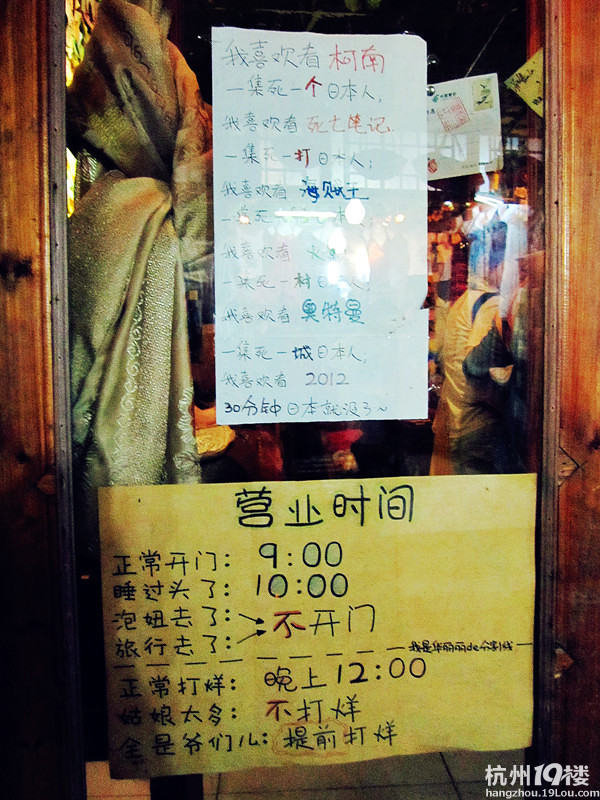 我喜欢看 柯南
一集死一个日本人;
我喜欢看 死亡笔记
一集死一打日本人;
我喜欢看 海贼王
一集死 本人;
我喜欢看 火
一集死一村日本人;
我喜欢看 奥特曼
一集死一城日本人;
我喜欢看 2012
30分钟日本就没了~
营业时间
正常开门: 9:00
睡过头了: 10:00
泡妞去了:
不开门
旅行去了:
我是华丽丽de分割线
正常打烊: 晚上12:00
姑娘太多: 不打烊
全是爷们儿: 提前打烊
杭州19楼
hangzhou.19Lou.com